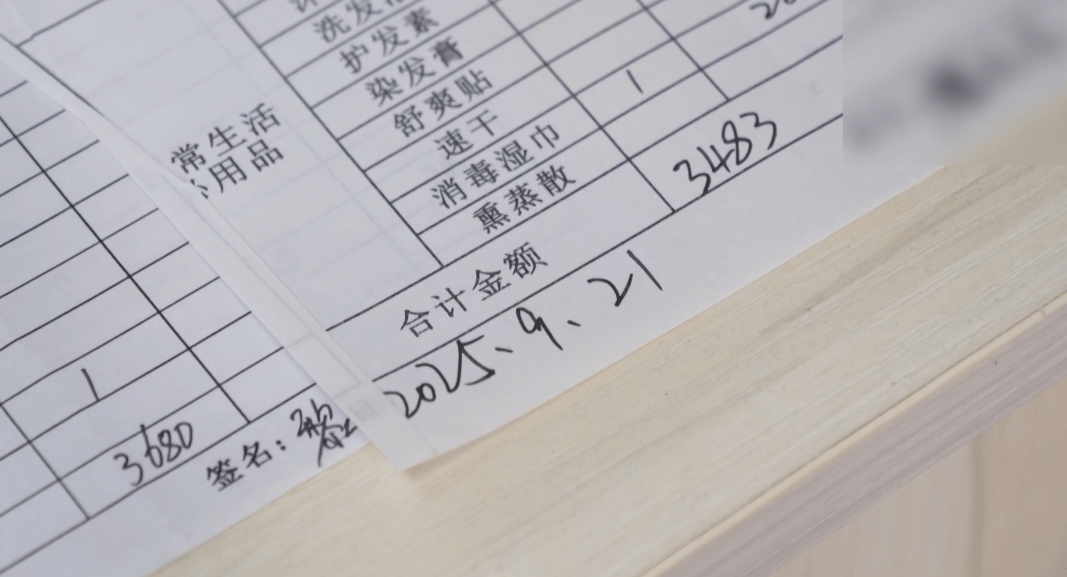 洗发
护发素
染发膏
舒爽贴
速干
1
消毒湿巾
熏蒸散
常生活
用品
合计金额
3483
2025、9、21
1
3680
签名：